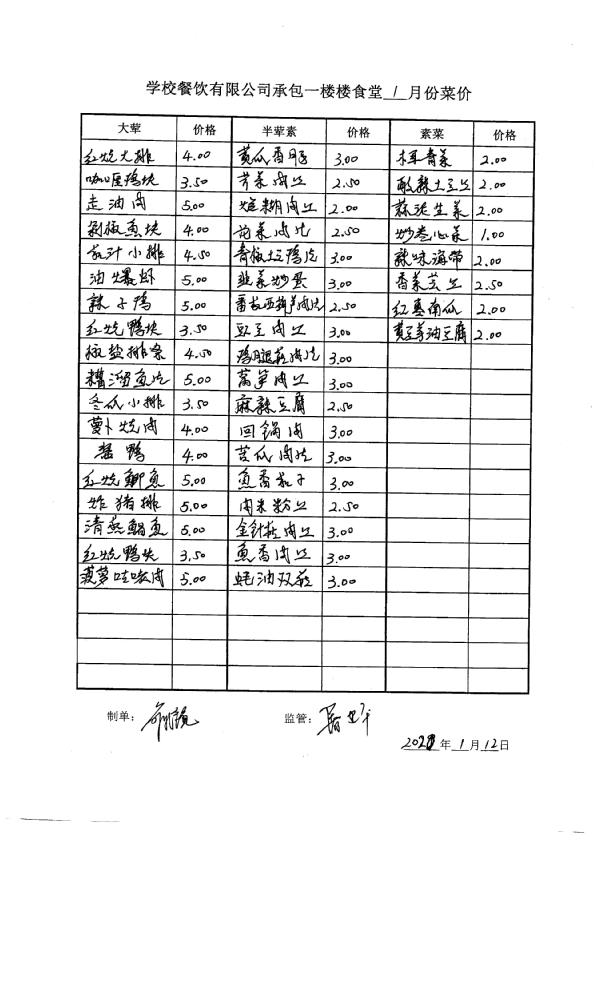 学校餐饮有限公司承包一楼楼食堂 1 月份菜价
大荤 价格 半荤素 价格 素菜 价格
红烧大排 4.00 黄瓜香肠 3.00 木耳青菜 2.00
咖喱鸡块 3.50 芹菜肉丝 2.50 酸辣土豆丝 2.00
走油肉 5.00 糊肉丝 2.00 蒜泥生菜 2.00
剁椒鱼块 4.00 花菜肉片 2.50 炒卷心菜 1.00
茄汁小排 4.50 青椒土豆鸡片 3.00 辣味海带 2.00
油爆虾 5.00 韭菜炒蛋 3.00 香菜芸丝 2.50
辣子鸡 5.00 番茄西葫芦肉片 2.50 红枣南瓜 2.00
红烧鸭块 3.50 豇豆肉丝 3.00 黄豆芽油豆腐 2.00
椒盐排条 4.50 鸡腿菇肉片 3.00
糟溜鱼片 5.00 莴笋肉丝 3.00
冬瓜小排 3.50 麻辣豆腐 2.50
萝卜烧肉 4.00 回锅肉 3.00
酱鸭 4.00 苦瓜肉片 3.00
红烧鲫鱼 5.00 鱼香茄子 3.00
炸猪排 5.00 肉末粉丝 2.50
清蒸鳊鱼 5.00 金针菇肉丝 3.00
红烧鸭块 3.50 鱼香肉丝 3.00
菠萝咕咾肉 5.00 蚝油双菇 3.00
制单： 监管：
2021年1月12日